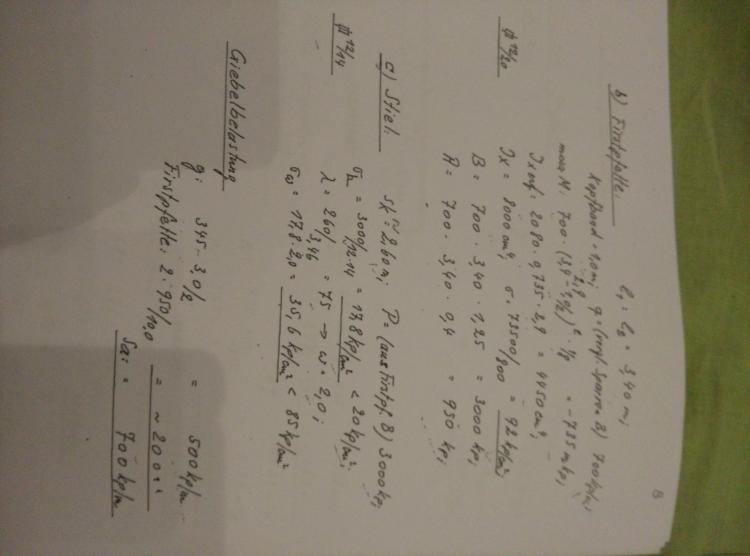 8
b) Firstpfette.
l₁ = l₂ = 3,40 m;
Kopfband = 1,0 m; q = (vergl. Sparren B) 700 kp/m;
2,9
max M. 700 · (3,4 - 1,0/2)² · 1/8 = -735 mkp;
Jx erf. 2080 · 0,735 · 2,9 = 4450 cm⁴;
⌀ 12/20
Jx = 8000 cm⁴; σ = 73500/800 = 92 kp/cm²;
B = 700 · 3,40 · 1,25 = 3000 kp;
A = 700 · 3,40 · 0,4 = 950 kp;
c) Stiel.
sk = 2,60 m; P = (aus Firstpf. B) 3000 kp;
⌀ 12/14
σ = 3000/12·14 = 17,8 kp/cm² < 20 kp/cm²;
λ = 260/3,46 = 75 → ω = 2,0;
σω = 17,8 · 2,0 = 35,6 kp/cm² < 85 kp/cm²
Giebelbelastung
g: 345 · 3,0/2 = 500 kp/m
Firstpfette: 2 · 950/10,0 = ~ 200 "
Sa: = 700 kp/m